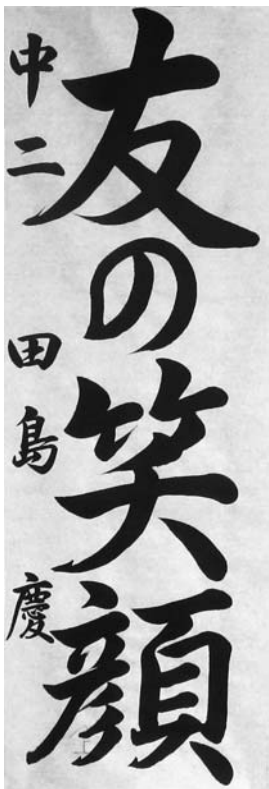 友の笑顔
中二 田島 慶